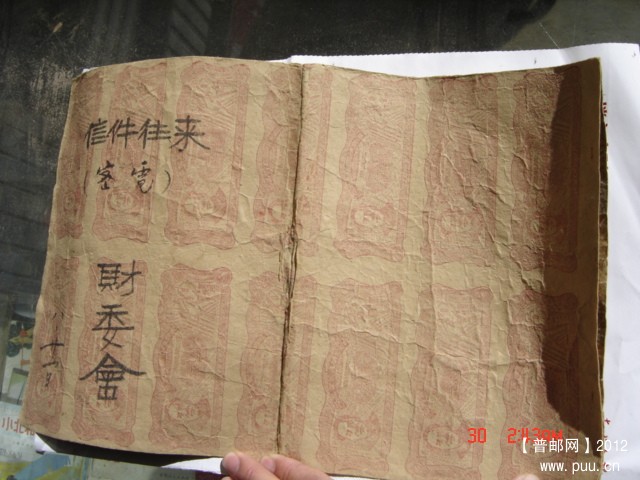 信件往来
(密電)
財委會
小北
30
【普邮网】2012
www.puu.cn